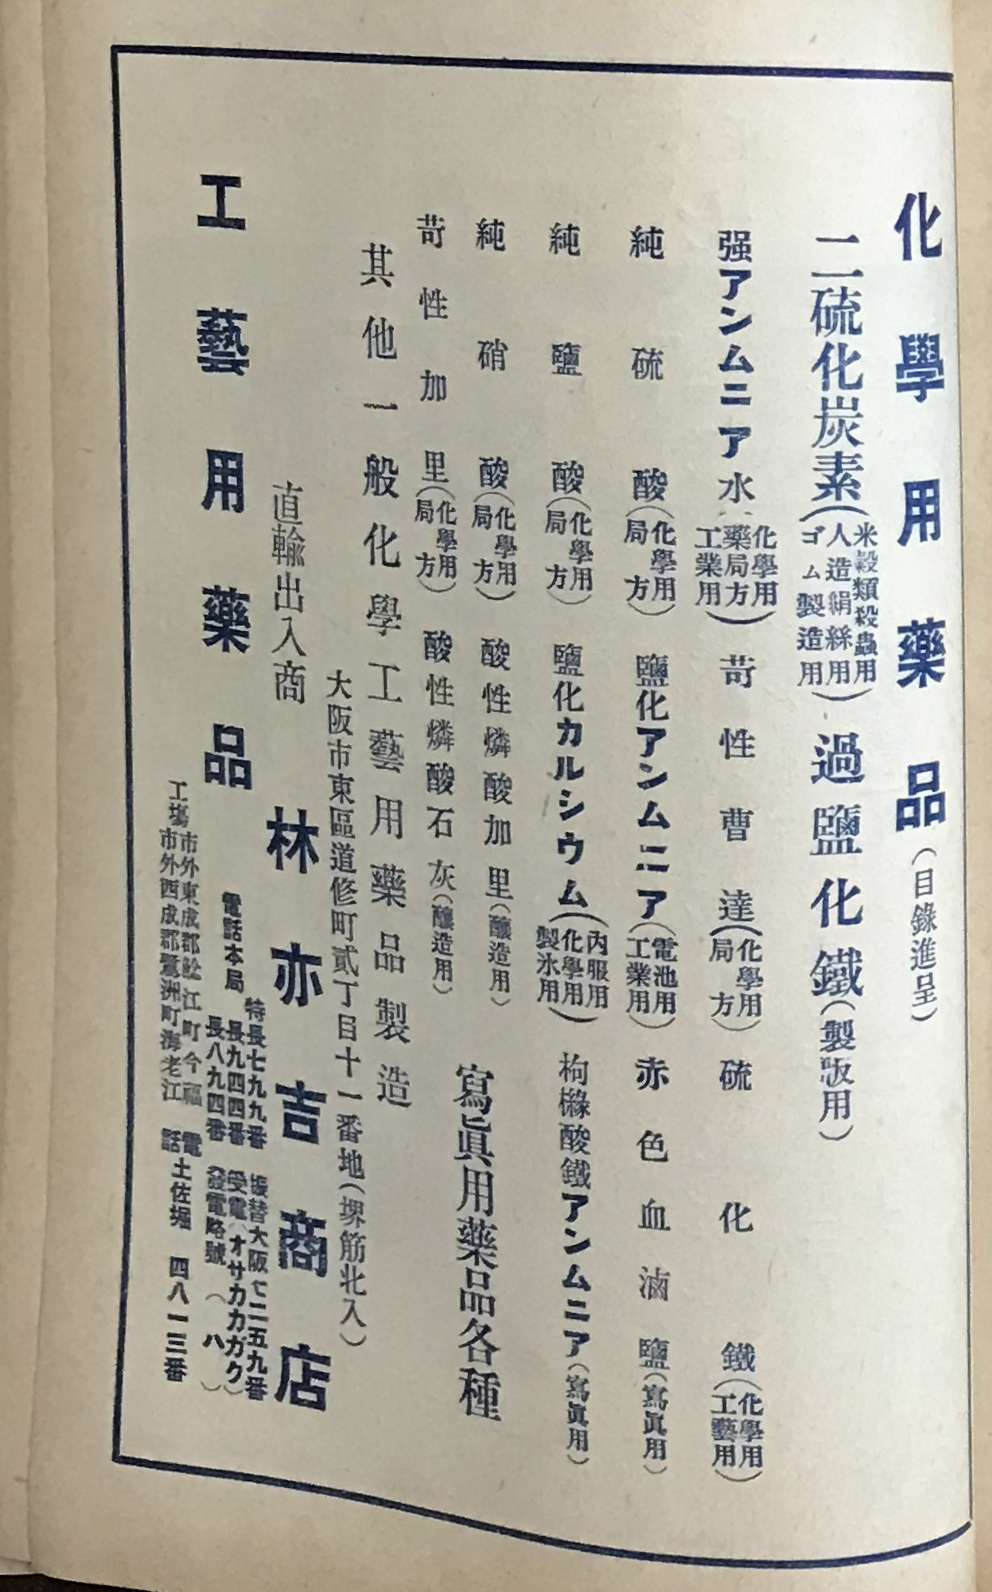 化學用藥品(目錄進呈)
二硫化炭素(米穀類殺蟲用 人造絹絲用 ゴム製造用) 過鹽化鐵(製版用)
强アンムニア水(化學用 藥局方 工業用) 苛性曹達(化學用 局方) 硫化鐵(化學用 工藝用)
純硫酸(化學用 局方) 鹽化アンムニア(電池用 工業用) 赤色血滷鹽(寫眞用)
純鹽酸(化學用 局方) 鹽化カルシウム(內服用 化學用 製氷用) 枸櫞酸鐵アンムニア(寫眞用)
純硝酸(化學用 局方) 酸性燐酸加里(釀造用)
苛性加里(化學用 局方) 酸性燐酸石灰(釀造用)
寫眞用藥品各種
其他一般化學工藝用藥品製造
大阪市東區道修町貳丁目十一番地(堺筋北入)
直輸出入商 林亦吉商店
電話本局 特長七九九番 長九四四番 長八九四番
振替大阪七二五九番
受電(オサカカガク)
發電略號(ハ)
工藝用藥品
工場 市外東成郡鯰江町今福
市外西成郡鷺洲町海老江
電話土佐堀 四八一三番